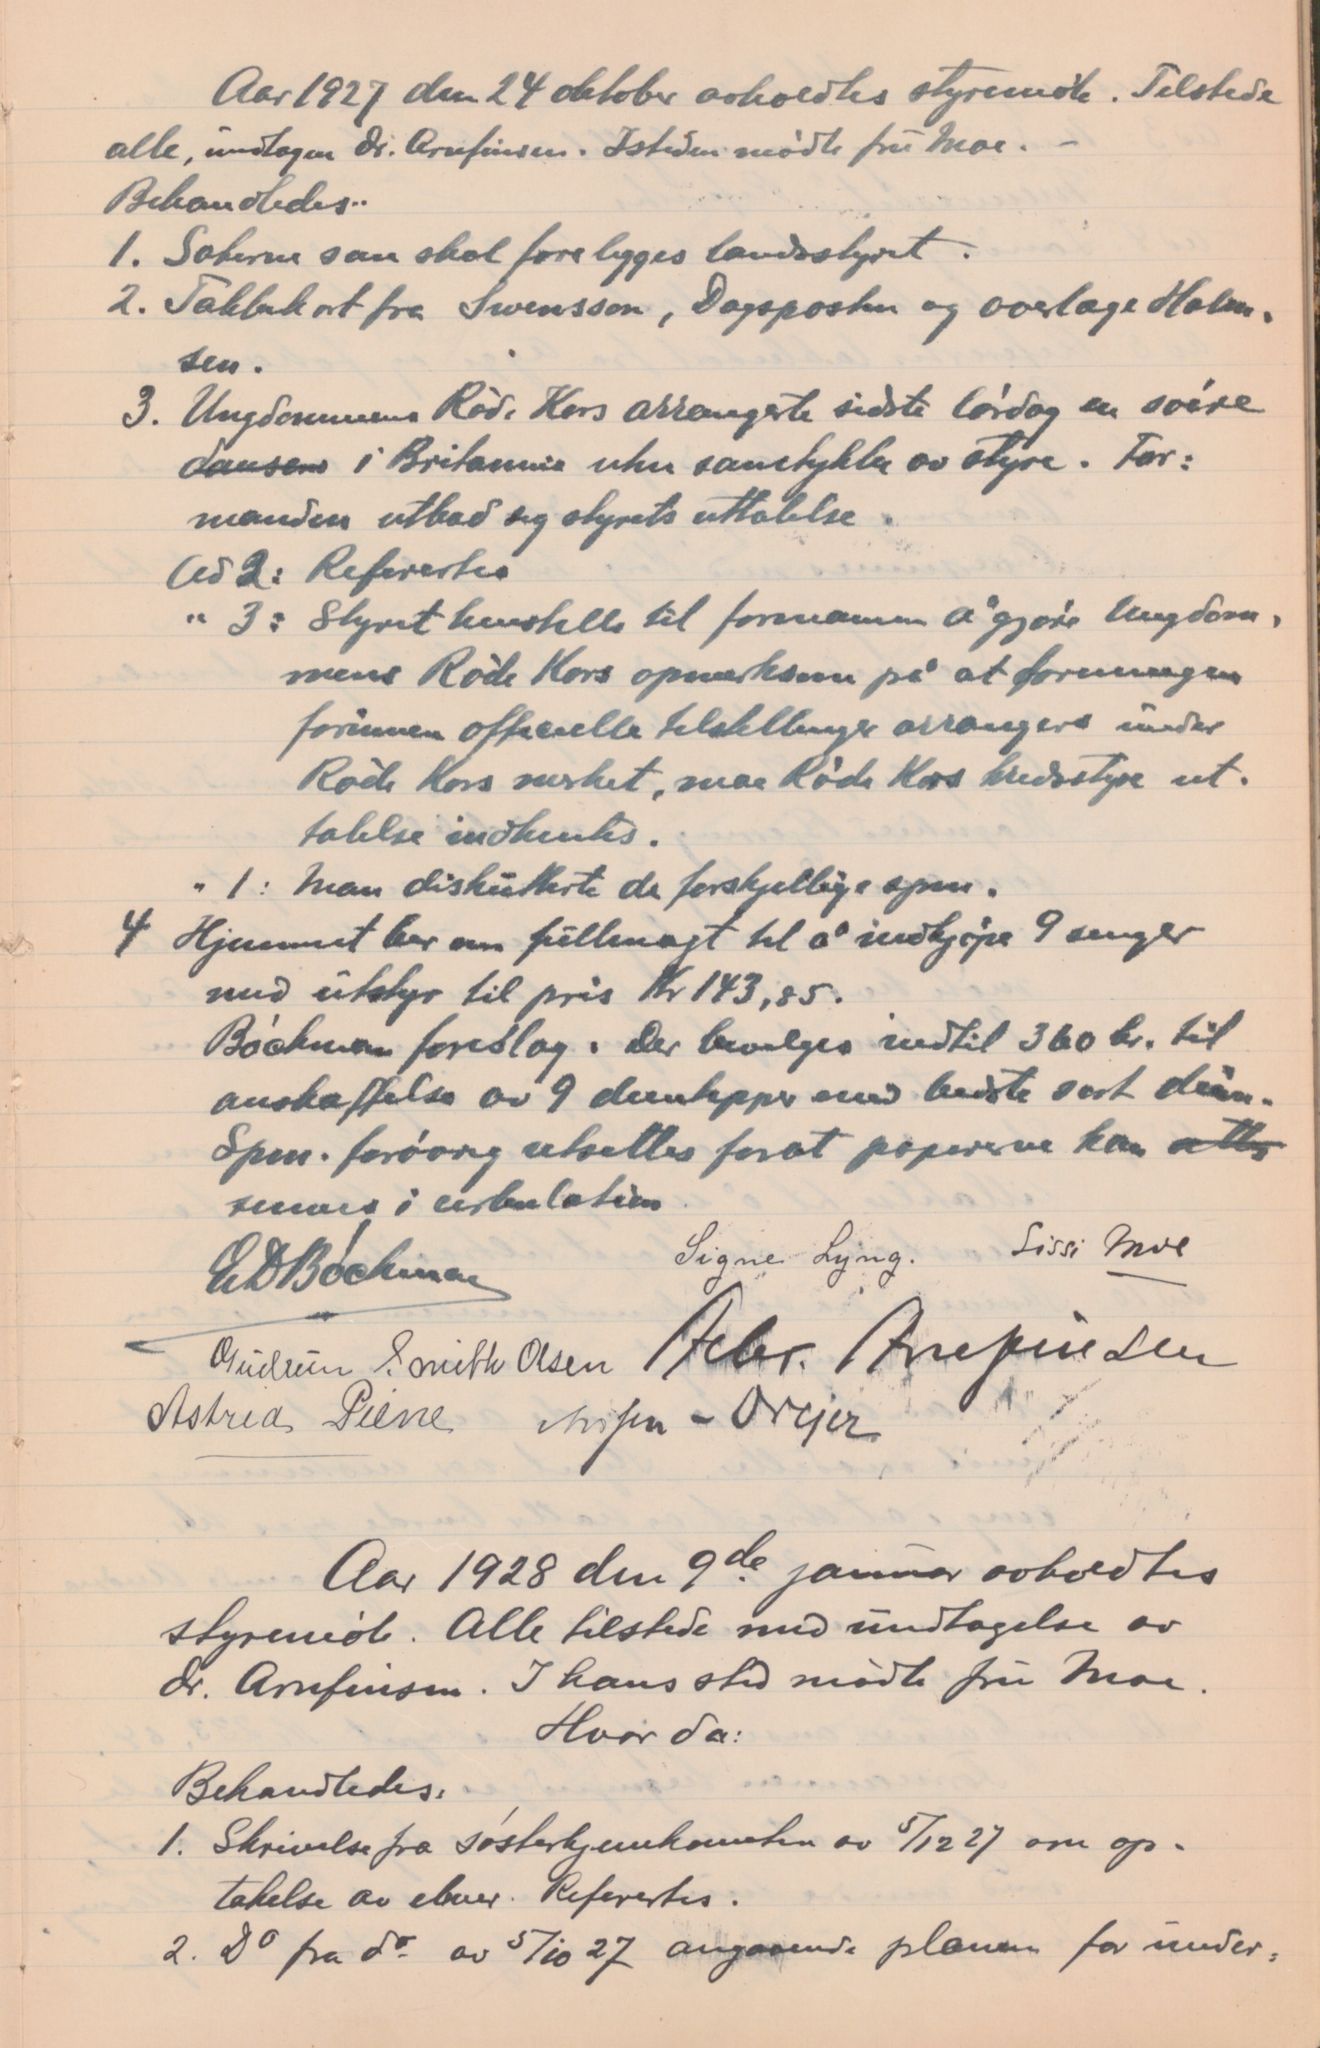 Aar 1927 den 24 oktober avholdtes styremöte. Tilstede
alle, undtagen dr. Arnfinsen. Isteden mödte fru Moe. -
Behandledes:
1. Sakerne som skal forelygges landsstyret.
2. Takkekort fra Swensson, Dagsposten og overlæge Holm-
sen.
3. Ungdommens Röde Kors arrangerte sidste lördag en soire
dansen i Britannia uten samtykke av styre. For:
manden utbad sig styrets uttalelse.
Ad 2: Refererter
" 3: Styret henstille til formannen å gjöre Ungdom,
mens Röde Kors opmerksom på at foreningen
forinnen officielle tilstellinger arrangers under
Röde Kors merket, maa Röde Kors kredsstyre ut.
talelse indhentes.
" 1: Man diskuterte de forskjellige spm.
4 Hjemmet ber om fullmagt til å indkjöpe 9 senger
med utstyr til pris Kr 143,85.
Böckman foreslog. Der bevilges indtil 360 kr. til
anskaffelse av 9 duntepper med bedste sort dun.
Spm. forövrig utsettes forat papirerne kan
sennes i cirkulation
E D Böckman
Signe Lyng. Sissi Moe
Gudrun Smith Olsen Arnfinsen
Astrid Piene - Dreyer
Aar 1928 den 9de januar avholdtes
styremöte. Alle tilstede med undtagelse av
dr. Arnfinsen. I hans sted mödte fru Moe.
Hvor da:
Behandledes:
1. Skrivelse fra Sösterhjemkomiteen av 5/12 27 om op-
takelse av elever. Refererter.
2. Do fra do av 5/10 27 angaaende planen for under: